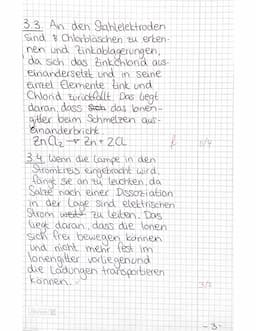 3.3. An den Stahlelektroden
sind Chlorbläschen zu erken-
nen und Zinkablagerungen,
da sich das Zinkchlorid aus-
einandersetzt und in seine
Elemente Zink und
Chlorid zurückfällt. Das liegt
daran, dass das Ionen-
gitter beim Schmelzen aus-
einanderbricht.
ZnCl₂ → Zn + 2Cl
3.4. Wenn die Lampe in den
Stromkreis eingebracht wird,
fängt sie an zu leuchten, da
Salze nach einer Dissoziation
in der Lage sind elektrischen
Strom zu leiten. Das
liegt daran, dass die Ionen
sich frei bewegen können
und nicht mehr fest im
Ionengitter vorliegen und
die Ladungen transportieren
können.
- 3 -